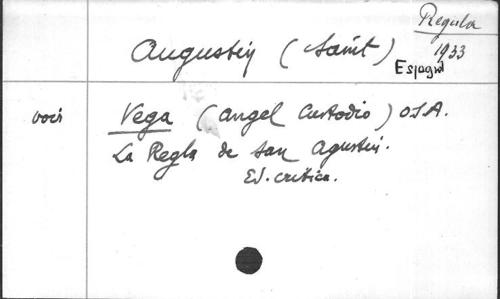 Regula
1933
Augustin (Saint)
Espagnol
voir Vega (Angel Custodio) O.S.A.
La Regla de San Agustin.
Ed. critica.